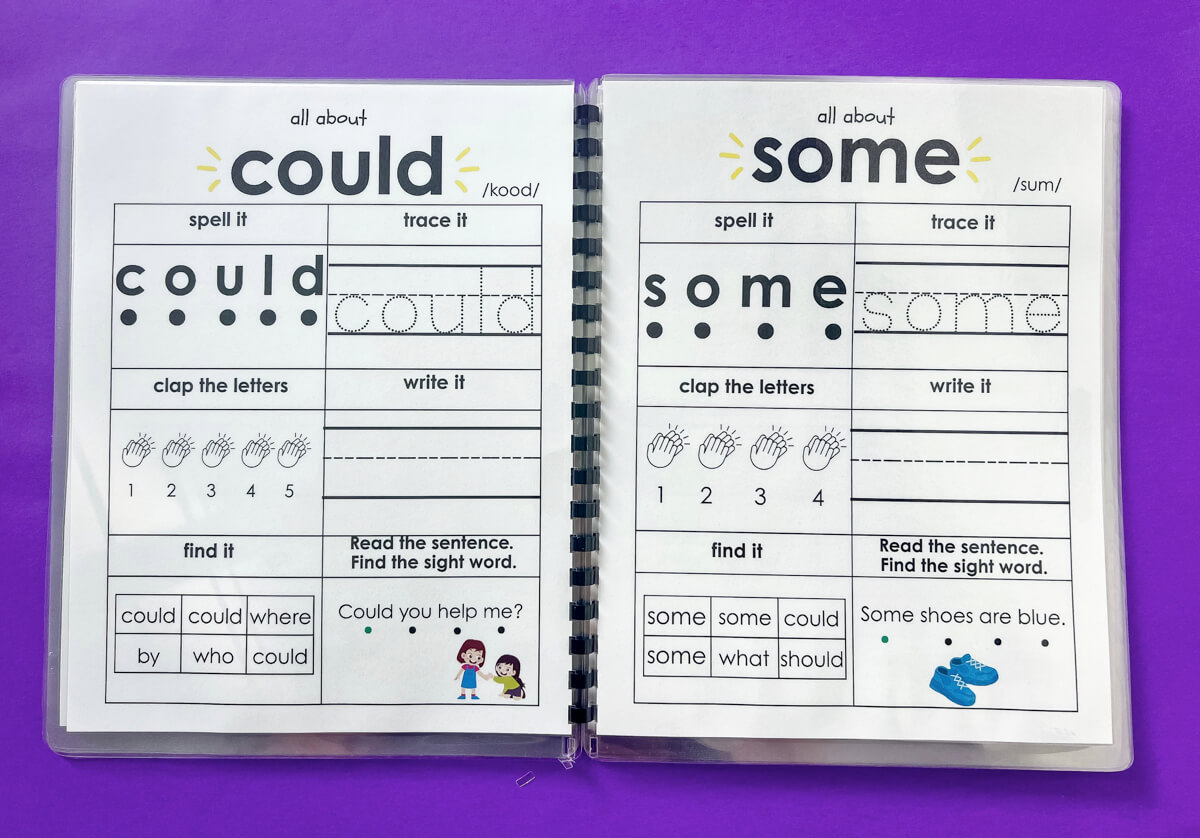 all about
could
/kood/
spell it
trace it
c o u l d
could
clap the letters
write it
1 2 3 4 5
find it
Read the sentence.
Find the sight word.
could could where
by who could
Could you help me?
all about
some
/sum/
spell it
trace it
s o m e
some
clap the letters
write it
1 2 3 4
find it
Read the sentence.
Find the sight word.
some some could
some what should
Some shoes are blue.